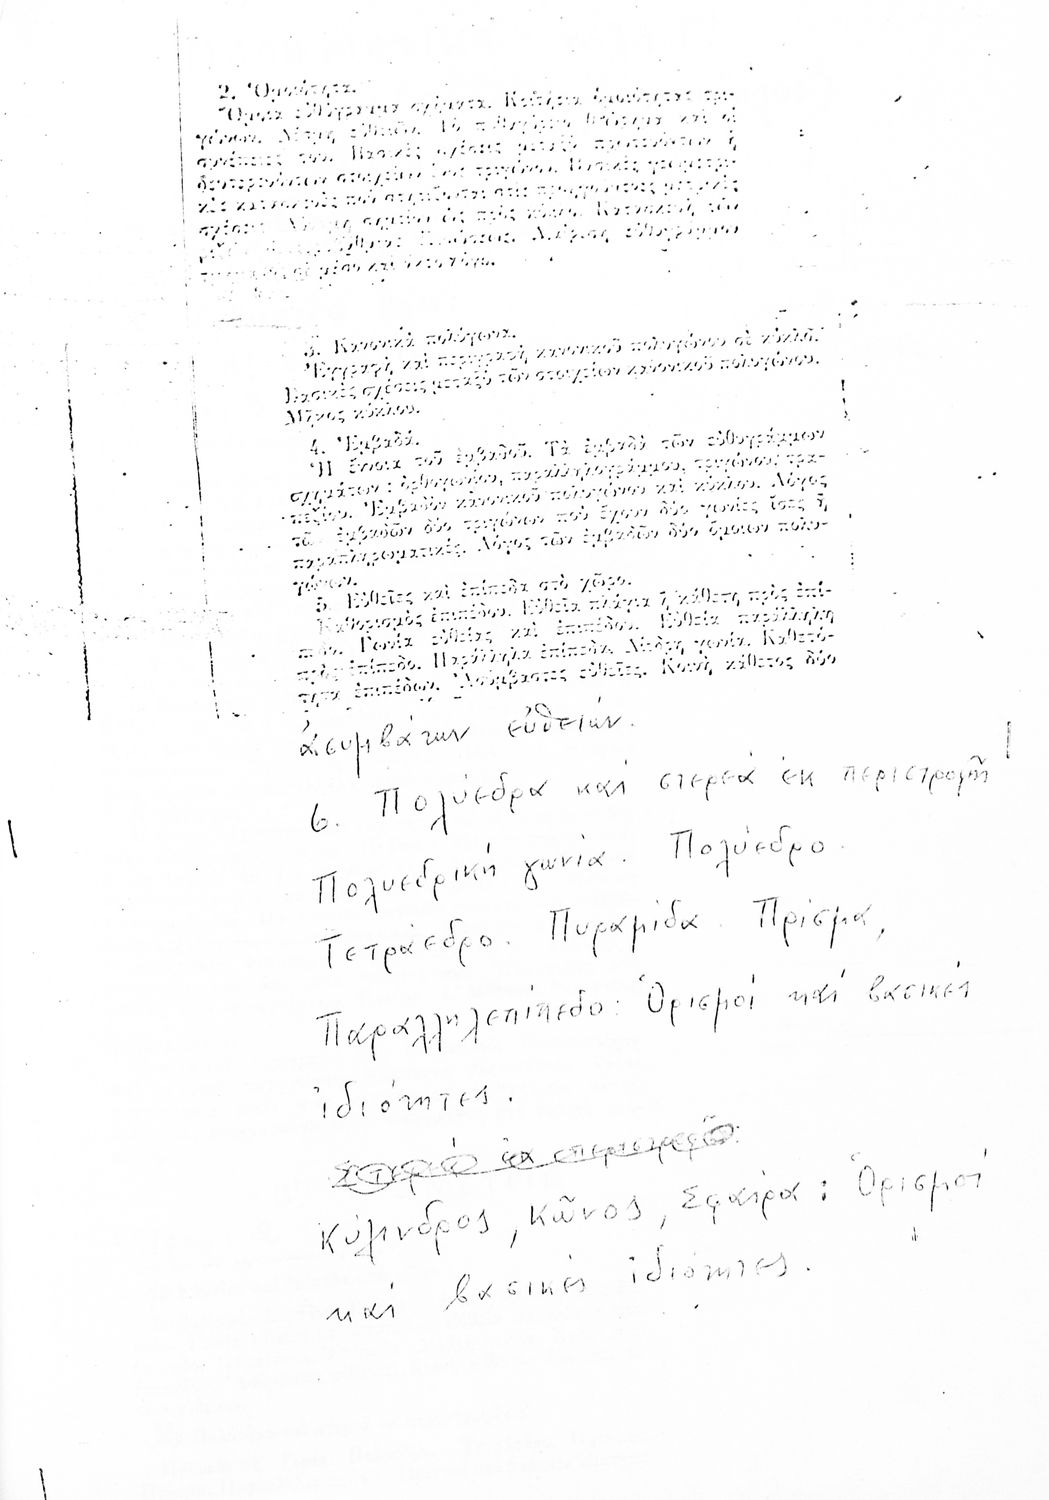 2. Ὁμοιότητα.
Ὅμοια εὐθύγραμμα σχήματα. Κριτήρια ὁμοιότητας τρι-
γώνων. Δέσμη εὐθειῶν. Τὸ πυθαγόρειο θεώρημα καὶ οἱ
συνέπειές του. Βασικὲς σχέσεις μεταξὺ πρωτευόντων ἢ
δευτερευόντων στοιχείων ἑνὸς τριγώνου. Βασικὲς γεωμετρι-
κὲς κατασκευὲς ποὺ στηρίζονται στὶς προηγούμενες μετρικὲς
σχέσεις. Δύναμη σημείου ὡς πρὸς κύκλο. Κατασκευὴ τῶν
Διαίρεση εὐθυγράμμου
μέσο καὶ ἄκρο λόγο.
3. Κανονικὰ πολύγωνα.
Ἐγγραφὴ καὶ περιγραφὴ κανονικοῦ πολυγώνου σὲ κύκλο.
Βασικὲς σχέσεις μεταξὺ τῶν στοιχείων κανονικοῦ πολυγώνου.
Μῆκος κύκλου.
4. Ἐμβαδά.
Ἡ ἔννοια τοῦ ἐμβαδοῦ. Τὰ ἐμβαδὰ τῶν εὐθυγράμμων
σχημάτων: ὀρθογωνίου, παραλληλογράμμου, τριγώνου, τρα-
πεζίου. Ἐμβαδὸν κανονικοῦ πολυγώνου καὶ κύκλου. Λόγος
τῶν ἐμβαδῶν δύο τριγώνων ποὺ ἔχουν δύο γωνίες ἴσες ἢ
παραπληρωματικές. Λόγος τῶν ἐμβαδῶν δύο ὅμοιων πολυ-
γώνων.
5. Εὐθεῖες καὶ ἐπίπεδα στὸ χῶρο.
Καθορισμὸς ἐπιπέδου. Εὐθεῖα πλάγια ἢ κάθετη πρὸς ἐπί-
πεδο. Γωνία εὐθείας καὶ ἐπιπέδου. Εὐθεῖα παράλληλη
πρὸς ἐπίπεδο. Παράλληλα ἐπίπεδα. Δίεδρη γωνία. Καθετό-
τητα ἐπιπέδων. Ἀσύμβατες εὐθεῖες. Κοινὴ κάθετος δύο
ἀσυμβάτων εὐθειῶν.
6. Πολύεδρα καὶ στερεὰ ἐκ περιστροφῆς
Πολυεδρικὴ γωνία. Πολύεδρο.
Τετράεδρο. Πυραμίδα. Πρίσμα,
Παραλληλεπίπεδο: Ὁρισμοὶ καὶ βασικὲς
ἰδιότητες.
Στερεὰ ἐκ περιστροφῆς:
Κύλινδρος, Κῶνος, Σφαίρα: Ὁρισμοὶ
καὶ βασικὲς ἰδιότητες.